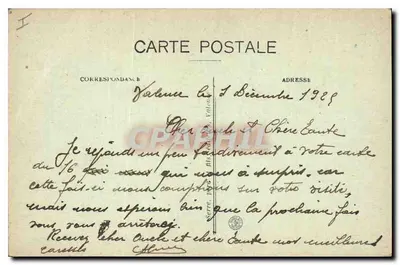 I
CARTE POSTALE
CORRESPONDANCE
ADRESSE
Valence le 1 Décembre 1925
Cher Oncle et Chère Tante
Je réponds un peu tardivement à votre carte
du 16 qui nous a surpris, car
cette fois-ci nous comptions sur votre visite,
mais nous espérons bien que la prochaine fois
vous vous arrêterez
Recevez cher Oncle et chère Tante nos meilleures
caresses